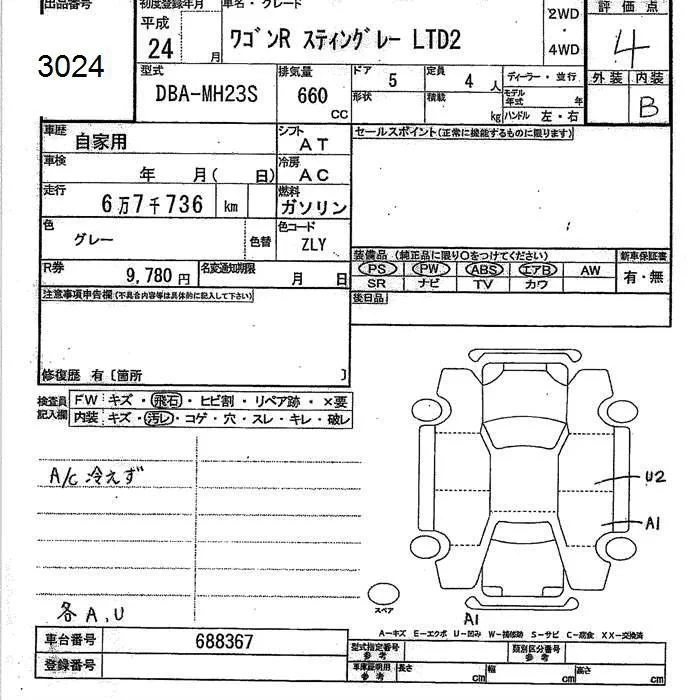 出品番号
3024
初度登録年月
平成
24 月
車名・グレード
ワゴンR スティングレー LTD2
2WD
・
4WD
評価点
4
外装 内装
B
型式
DBA-MH23S
排気量
660
CC
ドア
5
定員
4 人
形状
積載
kg
ディーラー・並行
モデル
年式 年
ハンドル 左・右
車歴
自家用
シフト
AT
セールスポイント(正常に機能するものに限ります)
車検
年 月( 日)
冷房
AC
走行
6万7千736 km
燃料
ガソリン
色
グレー
色替
色コード
ZLY
装備品 (純正品に限り○をつけてください)
PS PW ABS エアB AW
SR ナビ TV カワ
新車保証書
有・無
R券
9,780 円
名変通知期限
月 日
後日品
注意事項申告欄(不具合内容等は具体的に記入して下さい)
修復歴 有〔箇所 〕
検査員
記入欄
FW キズ・飛石・ヒビ割・リペア跡・×要
内装 キズ・汚レ・コゲ・穴・スレ・キレ・破レ
A/C 冷えず
U2
A1
スペア
A1
各A,U
A―キズ E―エクボ U―凹み W―補修跡 S―サビ C―腐食 XX―交換済
車台番号
688367
登録番号
型式指定番号
参考
類別区分番号
参考
車庫証明用
参考
長さ cm
幅 cm
高さ cm